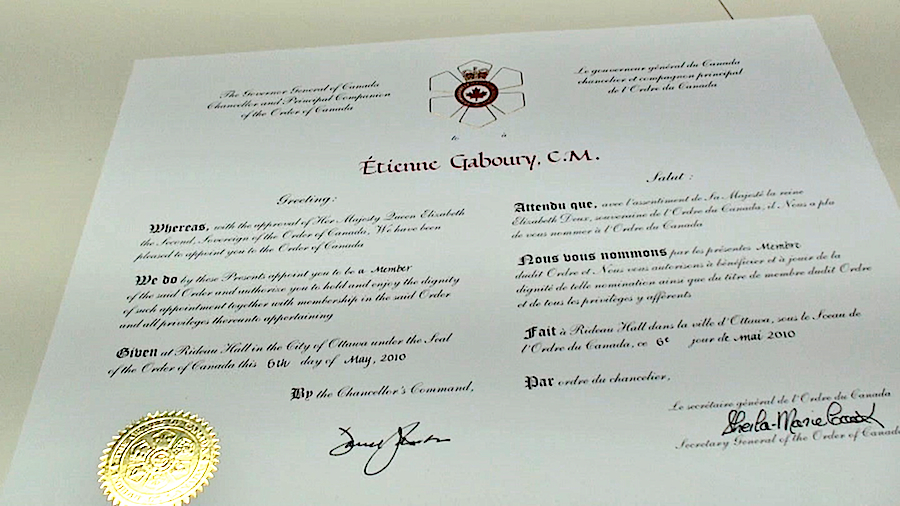 The Governor General of Canada
Chancellor and Principal Companion
of the Order of Canada
Le gouverneur général du Canada
chancelier et compagnon principal
de l'Ordre du Canada
to à
Étienne Gaboury, C.M.
Greeting:
Whereas, with the approval of Her Majesty Queen Elizabeth
the Second, Sovereign of the Order of Canada, We have been
pleased to appoint you to the Order of Canada
We do by these Presents appoint you to be a Member
of the said Order and authorize you to hold and enjoy the dignity
of such appointment together with membership in the said Order
and all privileges thereunto appertaining
Given at Rideau Hall in the City of Ottawa under the Seal
of the Order of Canada this 6th day of May, 2010
By the Chancellor's Command,
Salut :
Attendu que, avec l'assentiment de Sa Majesté la reine
Elizabeth Deux, souveraine de l'Ordre du Canada, il Nous a plu
de vous nommer à l'Ordre du Canada
Nous vous nommons par les présentes Membre
dudit Ordre et Nous vous autorisons à bénéficier et à jouir de la
dignité de telle nomination ainsi que du titre de membre dudit Ordre
et de tous les privilèges y afférents
Fait à Rideau Hall dans la ville d'Ottawa, sous le Sceau de
l'Ordre du Canada, ce 6e jour de mai 2010
Par ordre du chancelier,
Le secrétaire général de l'Ordre du Canada
Sheila-Marie Cook
Secretary General of the Order of Canada